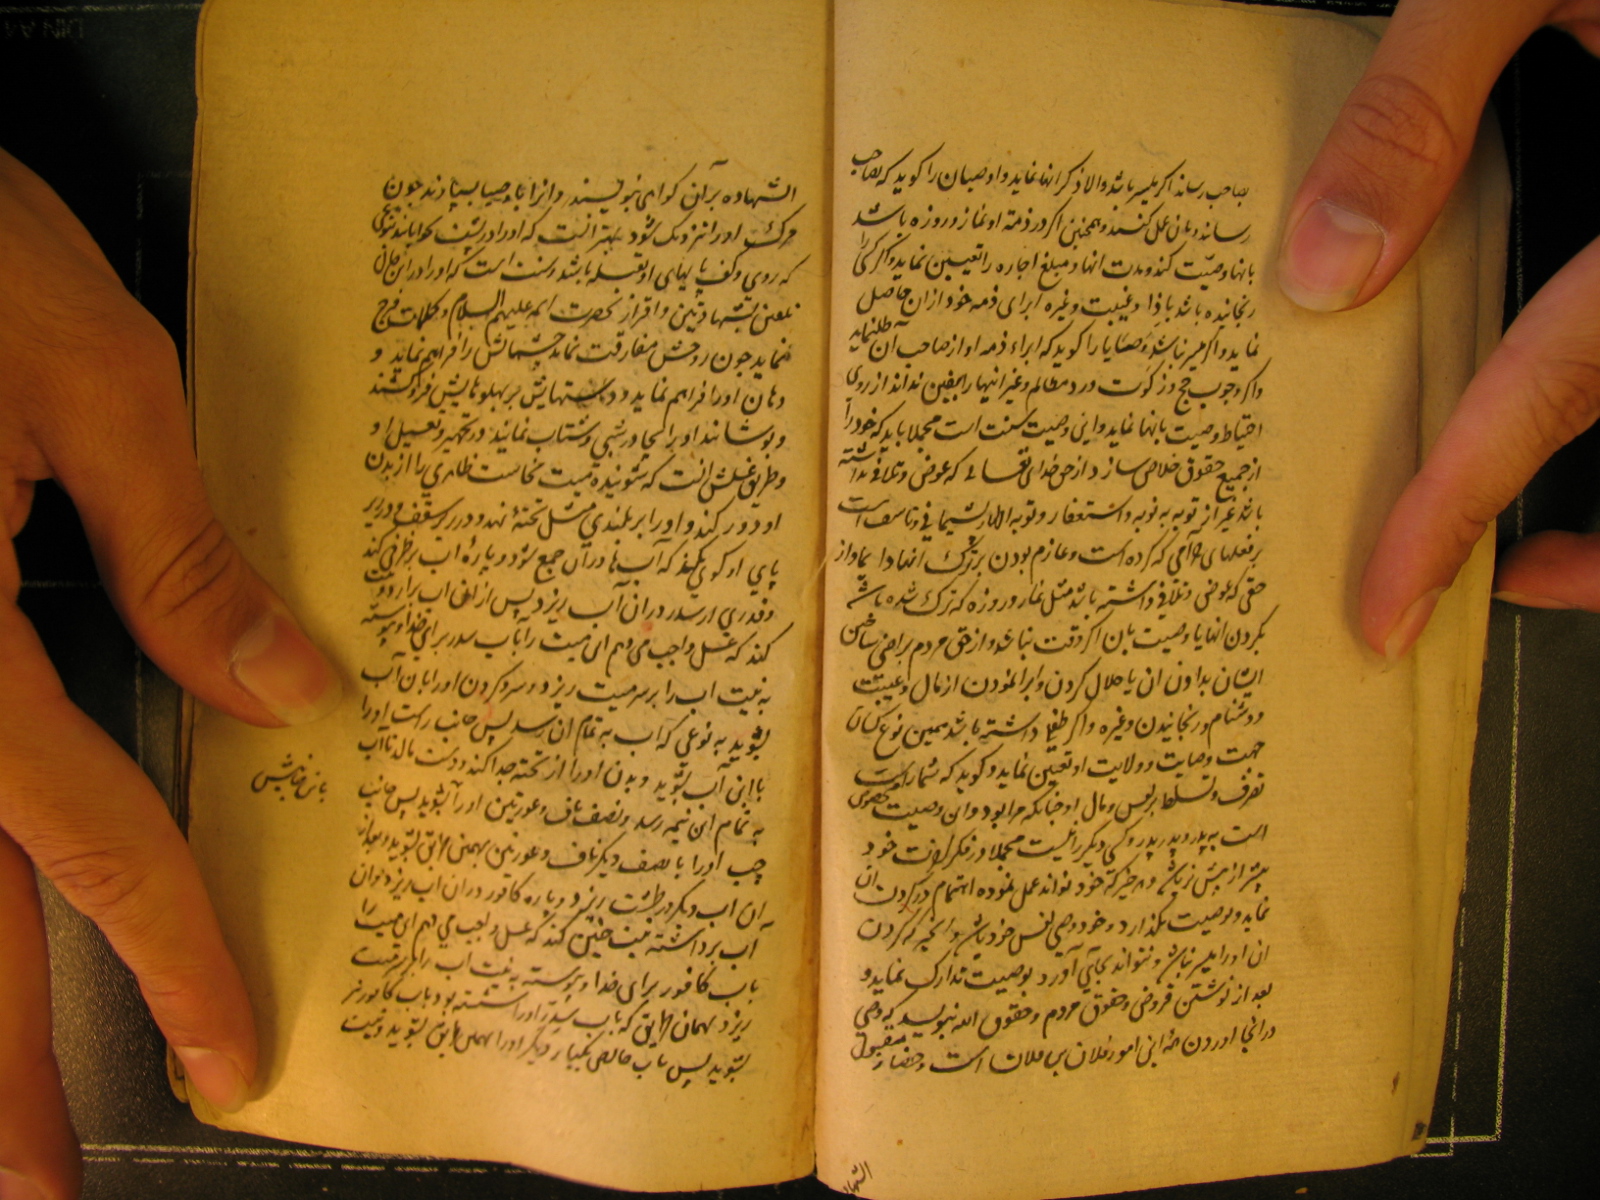 بصاحب رساند اگر میسر باشد والا ذکر انها نماید و اوصیان را گوید که بصاحب
رساند و بان عمل کنند و همچنین اگر در ذمه او نماز و روزه باشد
بانها وصیت کند و مدت انها و مبلغ اجاره را تعیین نماید و اگر کسی را
رنجانیده باشد باذا و غیبت و غیره ابرای ذمه خود از ان حاصل
نماید و اگر میسر نباشد وصایا را گوید که ابراء ذمه او از صاحب آن طلنماید
و اگر وجوب حج و زکوت و رد مظالم و غیر اینها را بیقین نداند از روی
احتیاط وصیت بانها نماید و این وصیت سنت است مجملا باید که خود را
از جمیع حقوق خلاص سازد از حق خدای تعالی که عوض و تلافی نداشته
باشد غیر از توبه به توبه و استغفار و توبه اظهار پشیمانی و تاسف است
بر فعلهای حرامی که کرده است و عازم بودن بر ترک انها دایما و از
حقی که عوض و تلافی داشته باشد مثل نماز و روزه که ترک شده باشد
بکردن انها یا وصیت بان اگر وقت نباشد و از حق مردم براضی ساختن
ایشان بدادن ان یا حلال کردن و ابرا نمودن از مال و غیبت
و دشنام و رنجانیدن و غیره و اگر طفلی داشته باشد بهمین نوع کسان
جهت وصایت و ولایت او تعیین نماید و گوید که شما راست
تصرف و تسلط بر نفس و مال او چنانکه مرا بود و این وصیت مخصوص
است به پدر و پدر پدر و کسی دیگر را نیست مجملا در فکر اخرت خود
پیشتر از پیش باشد و هر خیر که خود تواند عمل نموده اهتمام در کردن ان
نماید و بوصیت نگذارد و خود وصی نفس خود باشد و انچه که کردن
ان او را میسر نباشد و نتواند بجای آورد بوصیت تدارک نماید و
بعد از نوشتن قروض و حقوق مردم و حقوق الله بنویسد که وصی
در انجا اوردن این امور فلان بن فلان است و حضار مقبول
الشهاد
الشهاده بر آن گواهی بنویسند و انرا باوصیا بسپارند چون
مرگ او را نزدیک شود بهتر انست که او را در پشت بخوابانند بنوعی
که روی و کف پایهای او بقبله باشد و سنت است که او را در این حال
تلقین بشهادتین و اقرار بحضرت ایمه علیهم السلام و کلمات فرج
نماید چون روحش مفارقت نماید چشمانش را فراهم نماید و
دهان او را فراهم نماید و دستهایش بر پهلوهایش فرو کشند
و بپوشانند او را بچادر شبی و شتاب نمایند در تجهیز و تغسیل او
و طریق غسلش انست که شوینده میت نجاست ظاهری را از بدن
او دور کند و او را بر بلندی مثل تختهٔ نهد و در زیر سقف و در زیر
پای او گوی بکند که آب ها در آن جمع شود و پاره اب بر ظرفی کند
و قدری از سدر در ان آب ریزد پس از ان اب برابر دو
کند که غسل واجب می دهم این میت را بآب سدر برای خدا و پیوسته
به نیت اب را بر سر میت ریزد و سر و گردن او را بان آب
بشوید به نوعی که آب به تمام ان رسد پس جانب راست او را
با این آب بشوید و بدن او را از تخته جدا کند و دست مالد تا آب
به تمام این نیمه رسد و نصف ناف و عورتین او را بشوید پس جانب
چپ او را با نصف دیگر ناف و عورتین بهمین طریق بشوید و بعد از
ان اب دیگر در ظرف ریزد و پاره کافور در ان اب ریزد و ان
آب برداشته نیت چنین کند که غسل واجب می دهم این میت را
باب کافور برای خدا و پیوسته به نیت اب را بر سر میت
ریزد بهمان طریق که باب سدر او را شسته بود باب کافور نیز
بشوید پس باب خالص یکبار دیگر او را بهمین طریق بشوید و نیت